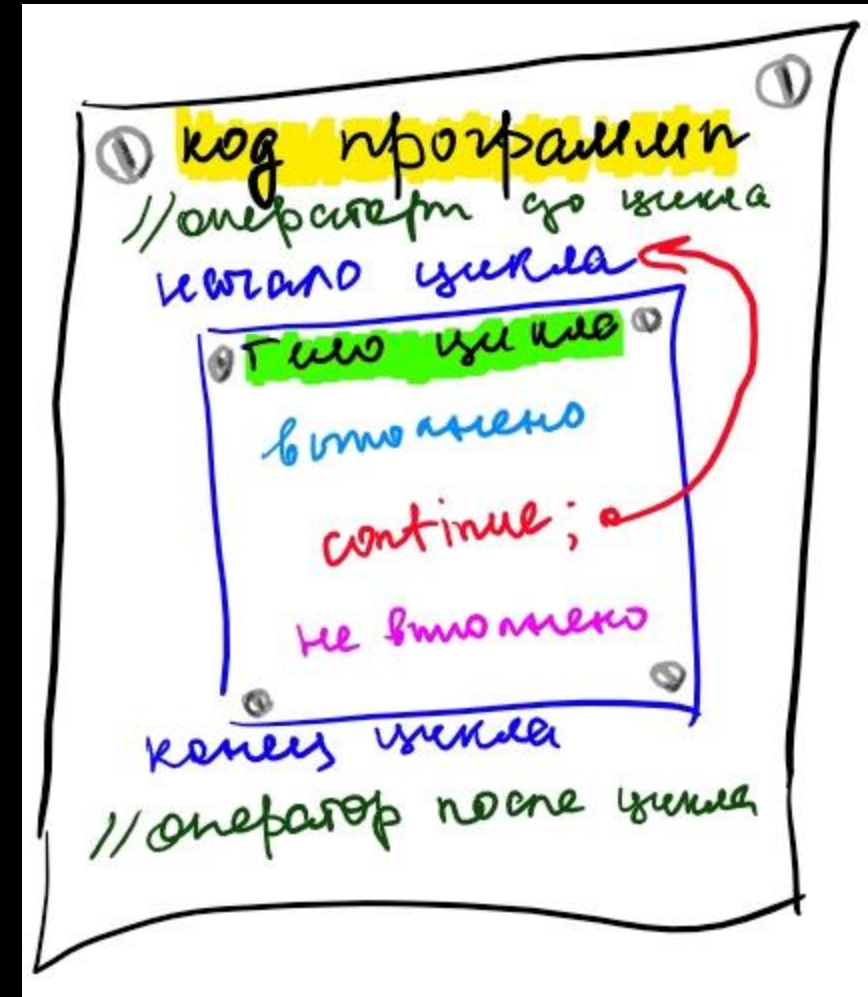 код программы
//операторы до цикла
начало цикла
тело цикла
выполнено
continue;
не выполнено
конец цикла
//оператор после цикла